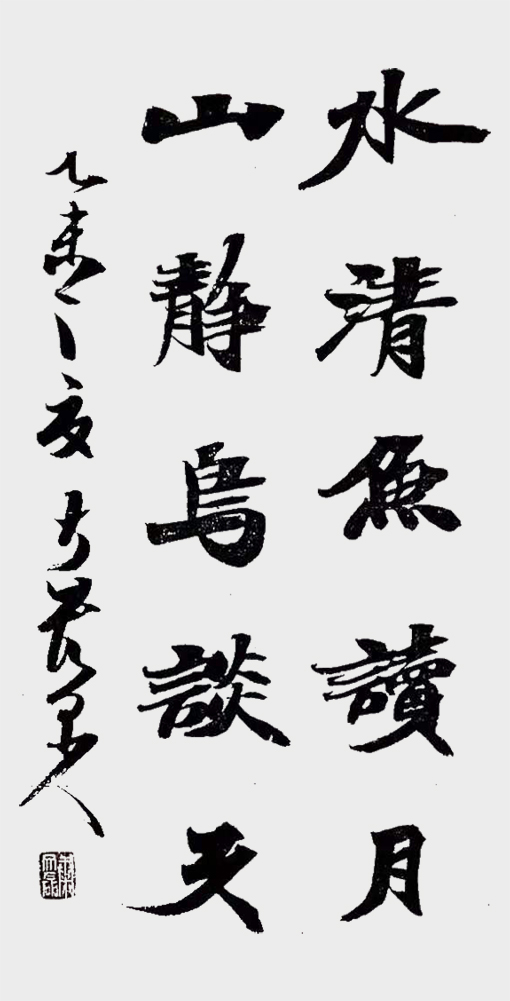 水清魚讀月
山靜鳥談天
乙未之夏